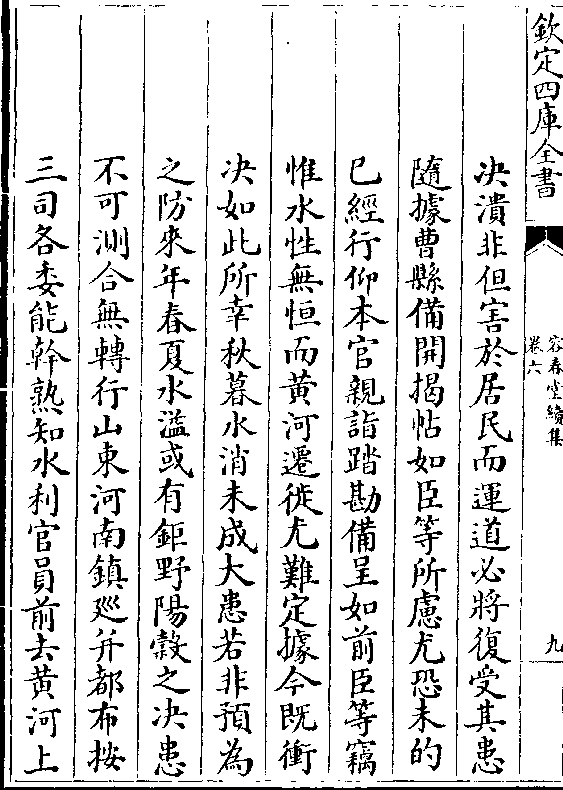 欽定四庫全書
容春堂續集
卷六
九
決潰非但害於居民而運道必將復受其患
隨據曹縣備開揭帖如臣等所慮尤恐未的
已經行仰本官親詣踏勘備呈如前臣等竊
惟水性無恒而黄河遷徙尤難定據今既衝
决如此所幸秋暮水消未成大患若非預為
之防來年春夏水溢或有鉅野陽榖之决患
不可測合無轉行山東河南鎮廵并都布按
三司各委能幹熟知水利官員前去黄河上